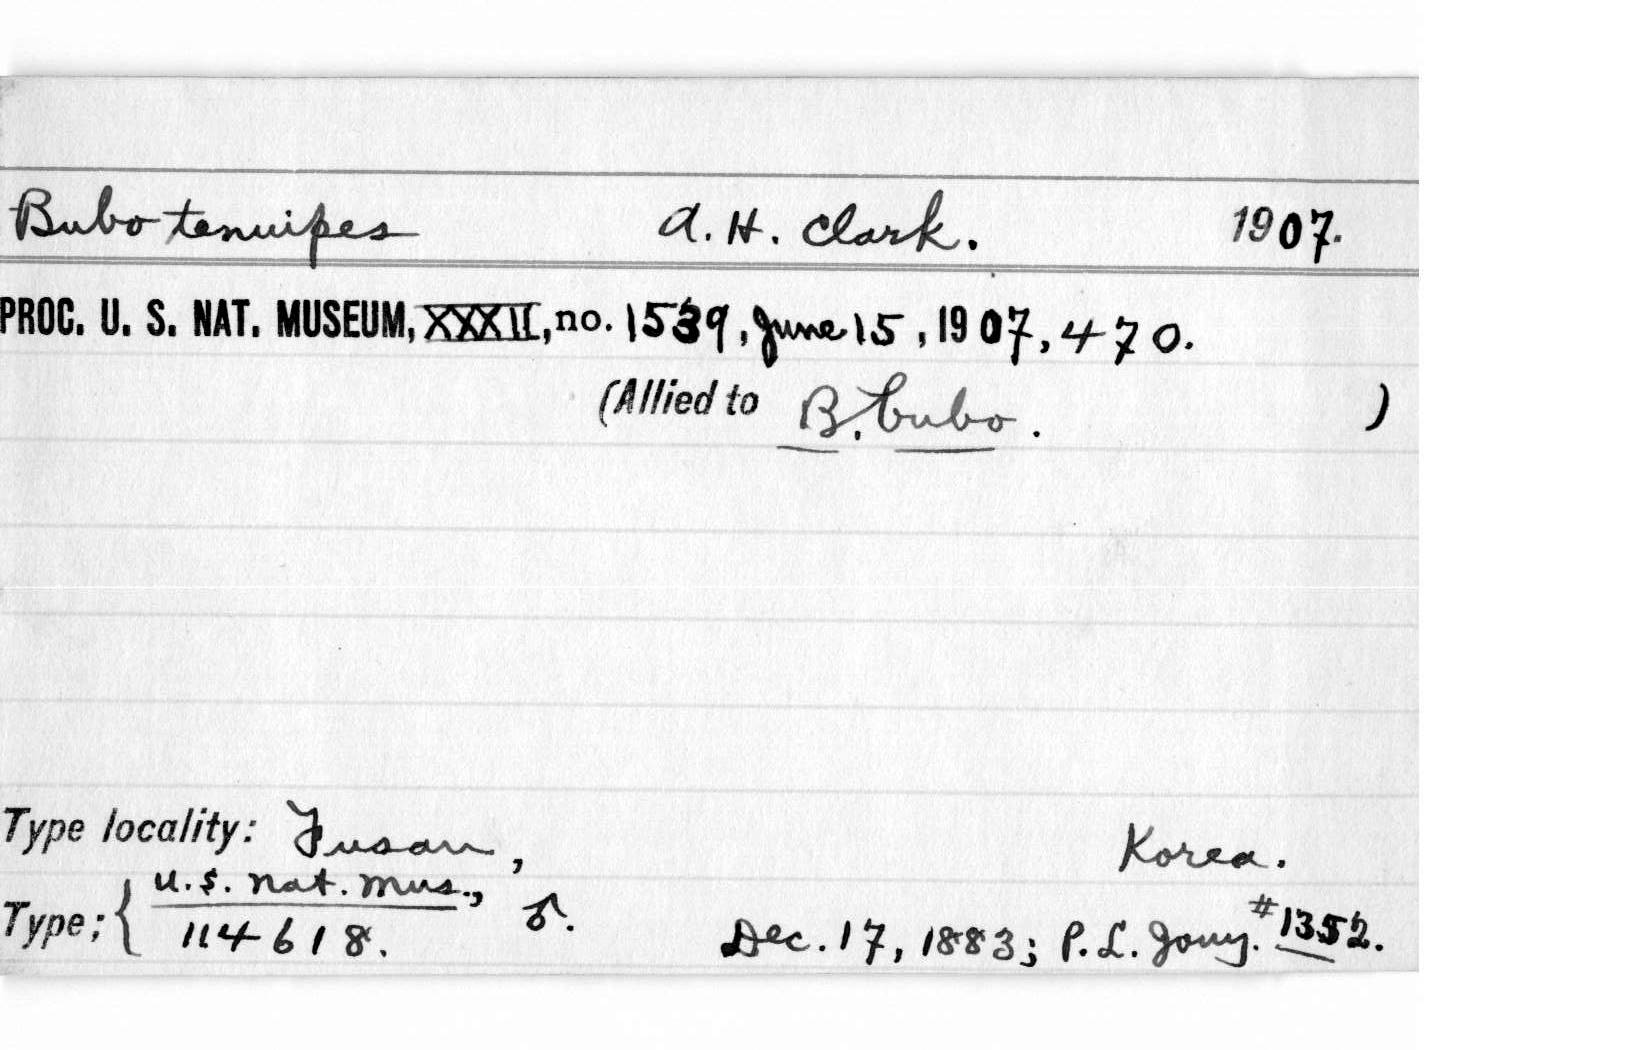 Bubo tenuipes A. H. Clark. 1907.
PROC. U. S. NAT. MUSEUM, XXXII, no. 1539, June 15, 1907, 470.
(Allied to B. bubo. )
Type locality: Fusan, Korea.
Type: { U.S. Nat. Mus., ♂. Dec. 17, 1883; P. L. Jouy. #1352.
114618.